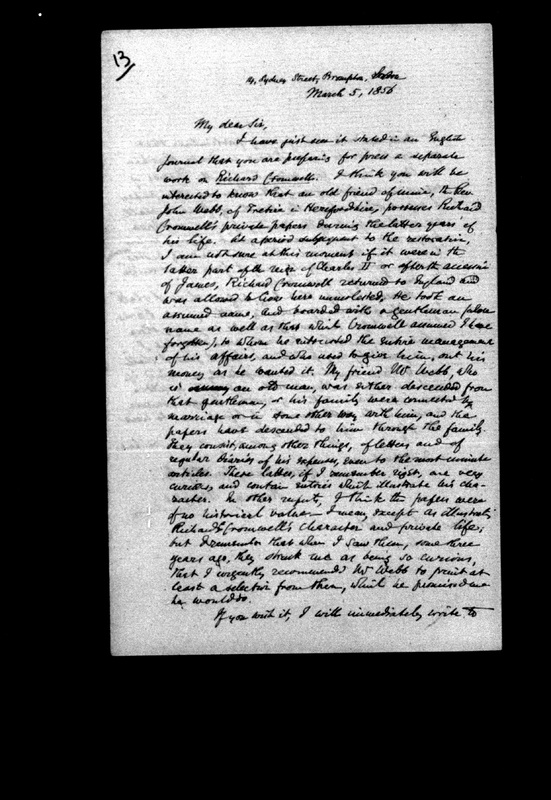 13
14, Sydney Street, Brompton, London
March 5, 1856
My dear Sir,
I have just seen it stated in an English
Journal that you are preparing for press a separate
work on Richard Cromwell. I think you will be
interested to know that an old friend of mine, the Rev.
John Webb, of Tretire in Herefordshire, possesses Richard
Cromwell's private papers during the latter years of
his life. At a period subsequent to the restoration,
I am not sure at this moment if it were in the
latter part of the reign of Charles II or after the accession
of James, Richard Cromwell returned to England and
was allowed to live here unmolested, he took an
assumed name, and boarded with a gentleman (whose
name as well as that which Cromwell assumed I have
forgotten), to whom he intrusted the entire management
of his affairs, and who used to give him out his
money as he wanted it. My friend Mr Webb, who
is an old man, was either descended from
that gentleman, or his family were connected by
marriage or in some other way with him, and the
papers have descended to him through the family.
They consist, among other things, of letters and of
regular diaries of his expenses, even to the most minute
articles. These latter, if I remember right, are very
curious, and contain entries which illustrate his cha-
racter. In other respects, I think the papers were
of no historical value - I mean except as illustrating
Richard Cromwell's character and private life,
but I remember that when I saw them, some three
years ago, they struck me as being so curious,
that I urgently recommended Mr Webb to print at
least a selection from them, which he promised me
he would do.
If you wish it, I will immediately write to